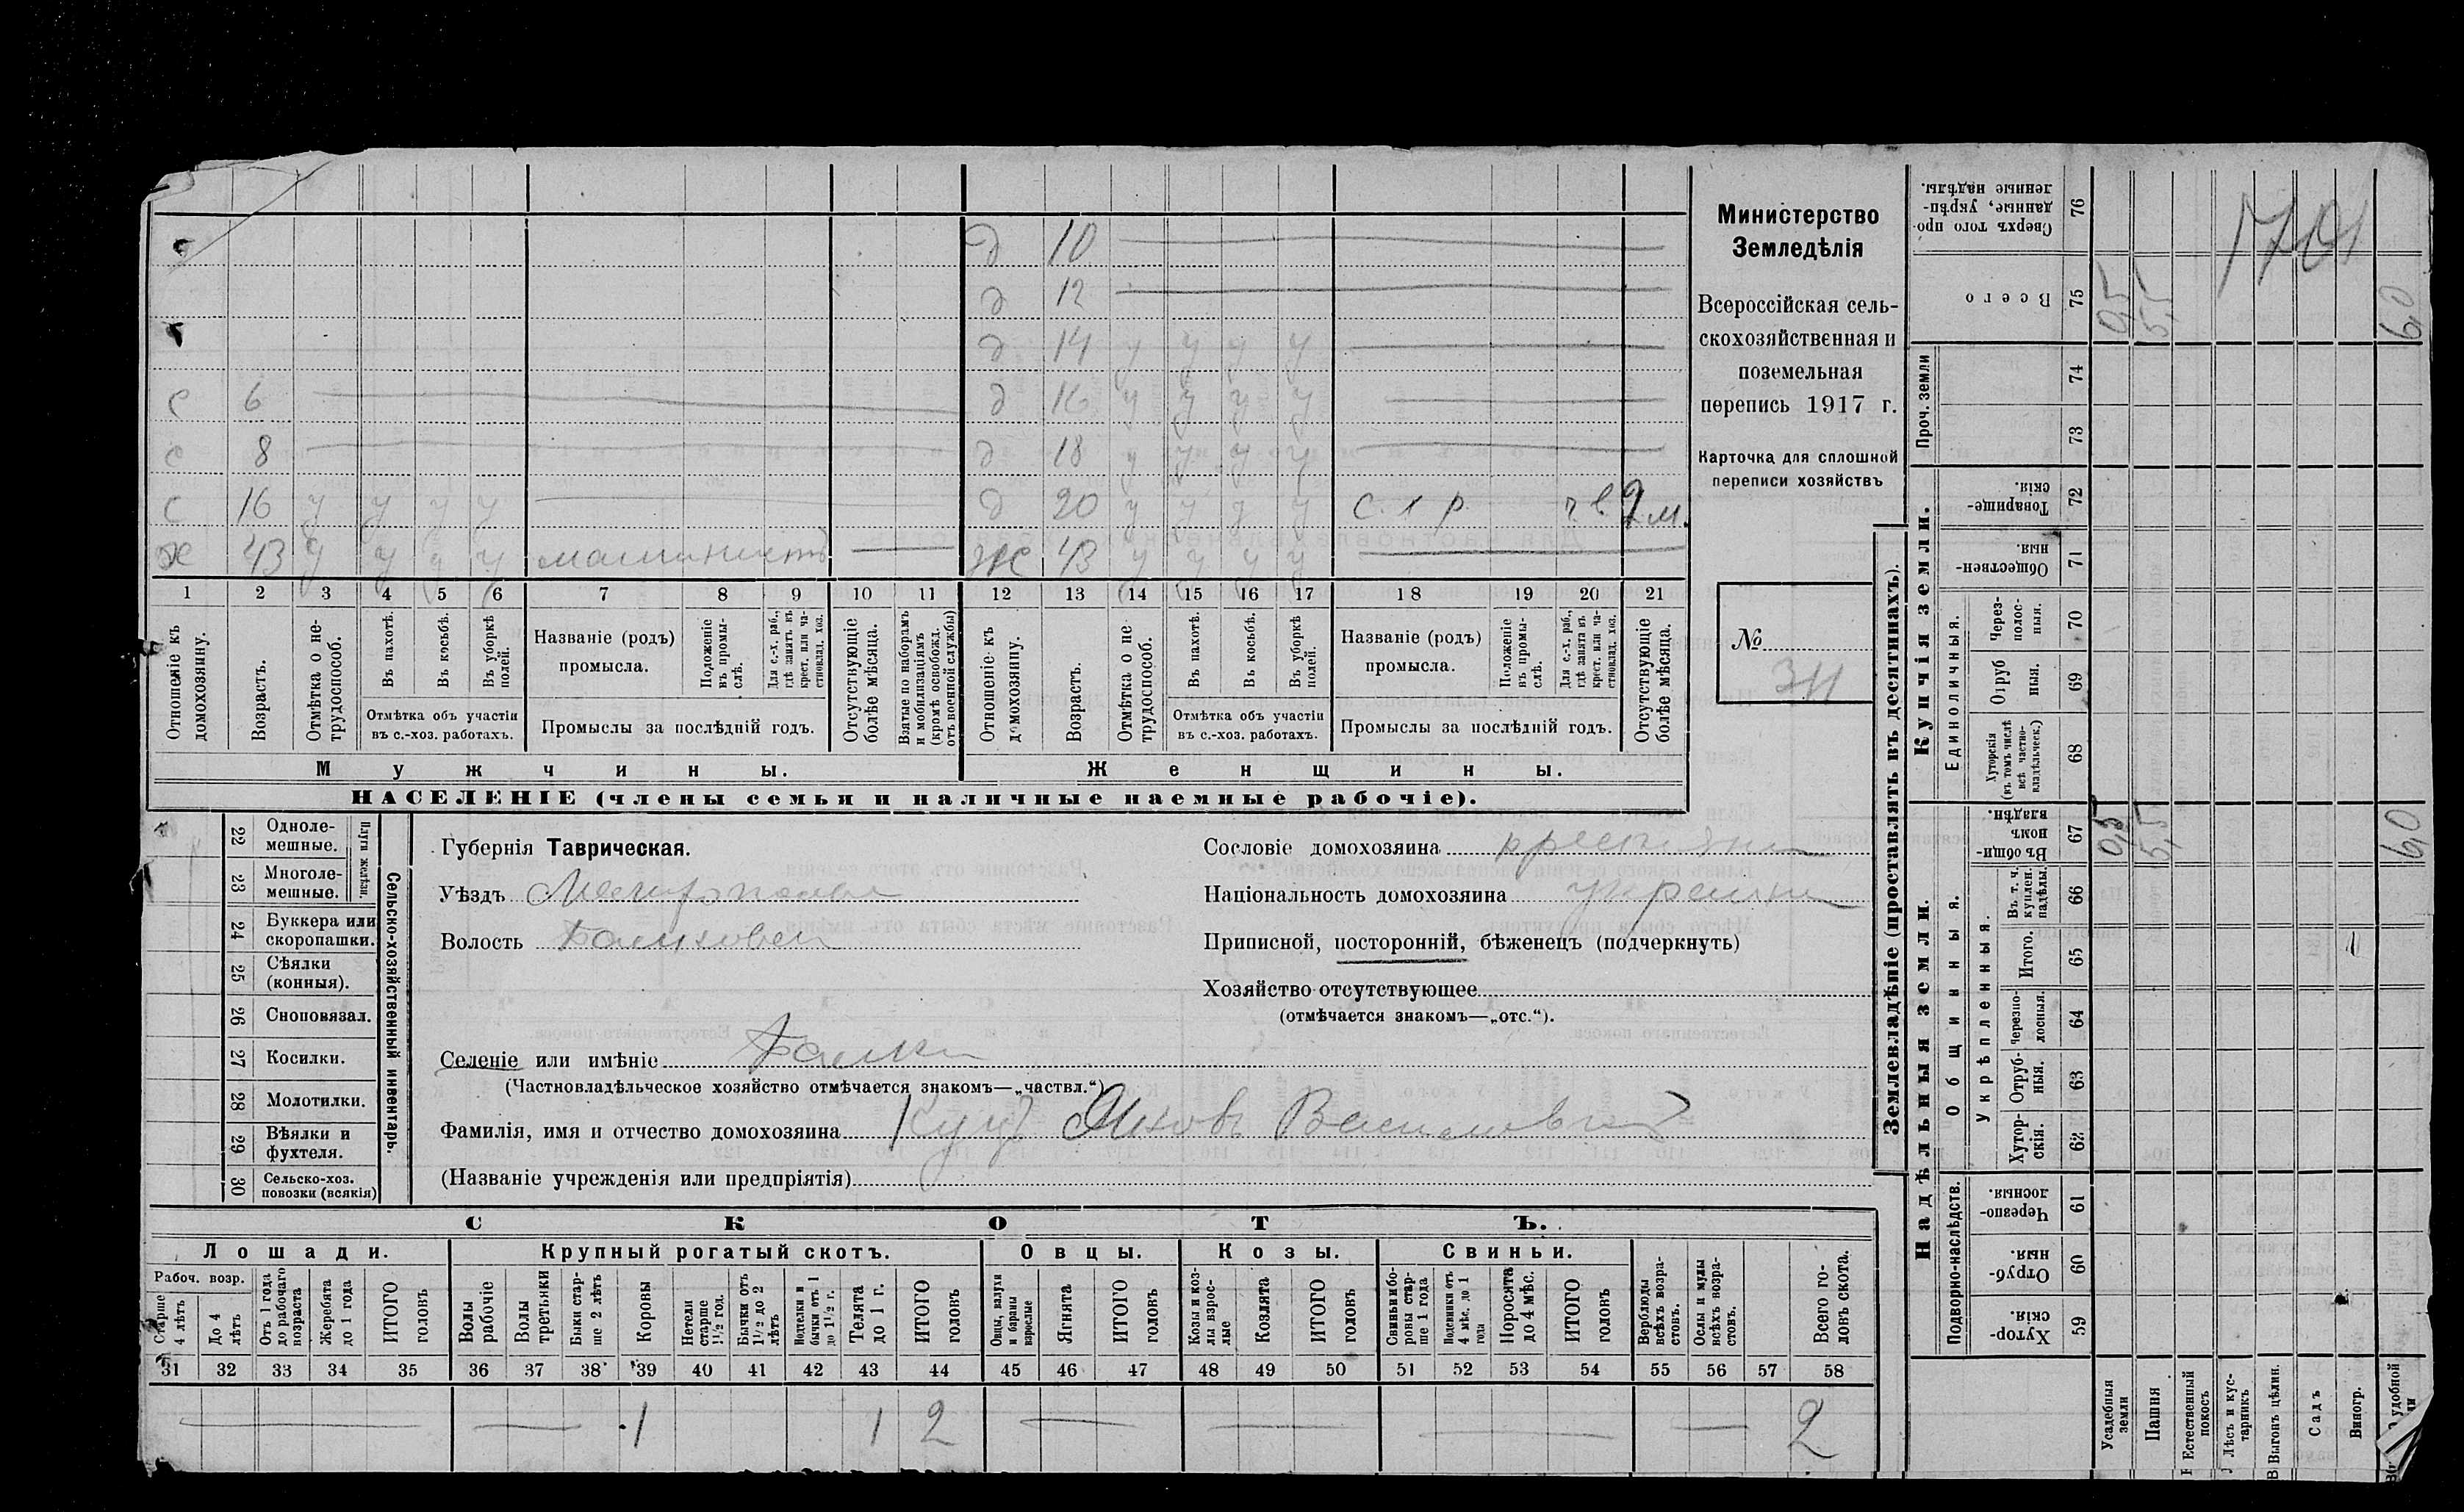 д 10
д 12
д 14 у у у у
с 6 д 16 у у у у
с 8 д 18 у у у у
с 16 у у у у д 20 у у у у с. х р. 2 м.
х 43 у у у у машинистъ ж 43 у у у у
1 2 3 4 5 6 7 8 9 10 11 12 13 14 15 16 17 18 19 20 21
Отношеніе къ домохозяину.
Возрастъ.
Отмѣтка о не-
трудоспособ.
Въ пахотѣ.
Въ косьбѣ.
Въ уборкѣ
полей.
Отмѣтка объ участіи
въ с.-хоз. работахъ.
Названіе (родъ)
промысла.
Положеніе
въ промы-
слѣ.
Для с.-х. раб.,
гдѣ занятъ въ
крест. или ча-
стновлад. хоз.
Промыслы за послѣдній годъ.
Отсутствующіе
болѣе мѣсяца.
Взятые по наборамъ
и мобилизаціямъ
(кромѣ освобожд.
отъ военной службы)
Отношеніе къ
домохозяину.
Возрастъ.
Отмѣтка о не
трудоспособ.
Въ пахотѣ.
Въ косьбѣ.
Въ уборкѣ
полей.
Отмѣтка объ участіи
въ с.-хоз. работахъ.
Названіе (родъ)
промысла.
Положеніе
въ промы-
слѣ.
Для с.-х. раб.,
гдѣ занята въ
крест. или ча-
стновлад. хоз.
Промыслы за послѣдній годъ.
Отсутствующіе
болѣе мѣсяца.
Мужчины.
Женщины.
НАСЕЛЕНІЕ (члены семьи и наличные наемные рабочіе).
Министерство
Земледѣлія
Всероссійская сель-
скохозяйственная и
поземельная
перепись 1917 г.
Карточка для сплошной
переписи хозяйствъ
№
34
22 Одноле-
мешные.
23 Многоле-
мешные.
Плуги желѣзн.
24 Буккера или
скоропашки.
25 Сѣялки
(конныя).
26 Сноповязал.
27 Косилки.
28 Молотилки.
29 Вѣялки и
фухтеля.
30 Сельско-хоз.
повозки (всякія)
Сельско-хозяйственный инвентарь.
Губернія Таврическая.
Уѣздъ Мелитополь
Волость Балковск
Селеніе или имѣніе Балки
(Частновладѣльческое хозяйство отмѣчается знакомъ—„частвл.“)
Фамилія, имя и отчество домохозяина Куцъ Яковъ Васильевич
(Названіе учрежденія или предпріятія)
Сословіе домохозяина крестьянин
Національность домохозяина украин
Приписной, посторонній, бѣженецъ (подчеркнуть)
Хозяйство отсутствующее
(отмѣчается знакомъ—„отс.“).
СКОТЪ.
Лошади.
Крупный рогатый скотъ.
Овцы.
Козы.
Свиньи.
Рабоч. возр.
Старше
4 лѣтъ
До 4
лѣтъ
Отъ 1 года
до рабочаго
возраста
Жеребята
до 1 года
ИТОГО
головъ
Волы
рабочіе
Волы
третьяки
Быки стар-
ше 2 лѣтъ
Коровы
Нетели
старше
1½ год.
Бычки отъ
1½ до 2
лѣтъ
Подтелки и
бычки отъ 1
до 1½ г.
Телята
до 1 г.
ИТОГО
головъ
Овцы, валухи
и бараны
взрослые
Ягнята
ИТОГО
головъ
Козы и коз-
лы взрос-
лые
Козлята
ИТОГО
головъ
Свиньи и бо-
ровы стар-
ше 1 года
Подсвинки отъ
4 мѣс. до 1
года
Поросята
до 4 мѣс.
ИТОГО
головъ
Верблюды
всѣхъ возра-
стовъ.
Ослы и мулы
всѣхъ возра-
стовъ.
Всего го-
ловъ скота.
31 32 33 34 35 36 37 38 39 40 41 42 43 44 45 46 47 48 49 50 51 52 53 54 55 56 57 58
1 1 2 2
Землевладѣніе (проставлять въ десятинахъ).
Надѣльныя земли.
Купчія земли.
Проч. земли
Сверхъ того про-
данные, укрѣп-
ленные надѣлы.
76
Всего
75
74
73
Товарище-
скія.
72
Обществен-
ныя.
71
Единоличныя.
Через-
полос-
ныя.
70
Отруб
ныя.
69
Хуторскія
(въ томъ числѣ
всѣ частно-
владѣльческ.)
68
Общинныя.
Въ общи-
номъ
владѣн.
67
Укрѣпленныя.
Въ т. ч.
куплен.
надѣлы.
66
Итого.
65
Черезпо-
лосныя.
64
Отруб-
ныя.
63
Хутор-
скія.
62
Подворно-наслѣдств.
Черезпо-
лосныя.
61
Отруб-
ныя.
60
Хутор-
скія.
59
1701
0,5 5,5 6,0
0,5 5,5 6,0
Усадебныя
земли
Пашня
Естественный
покосъ
Лѣсъ и кус-
тарникъ
Выгонъ цѣлин.
Садъ
Виногр.
удобной